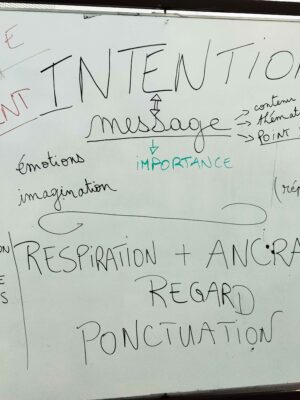 INTENTION
message
→ contenu
→ thémat
→ POINT
émotions
IMPORTANCE
imagination
RESPIRATION + ANCRA
REGARD
PONCTUATION